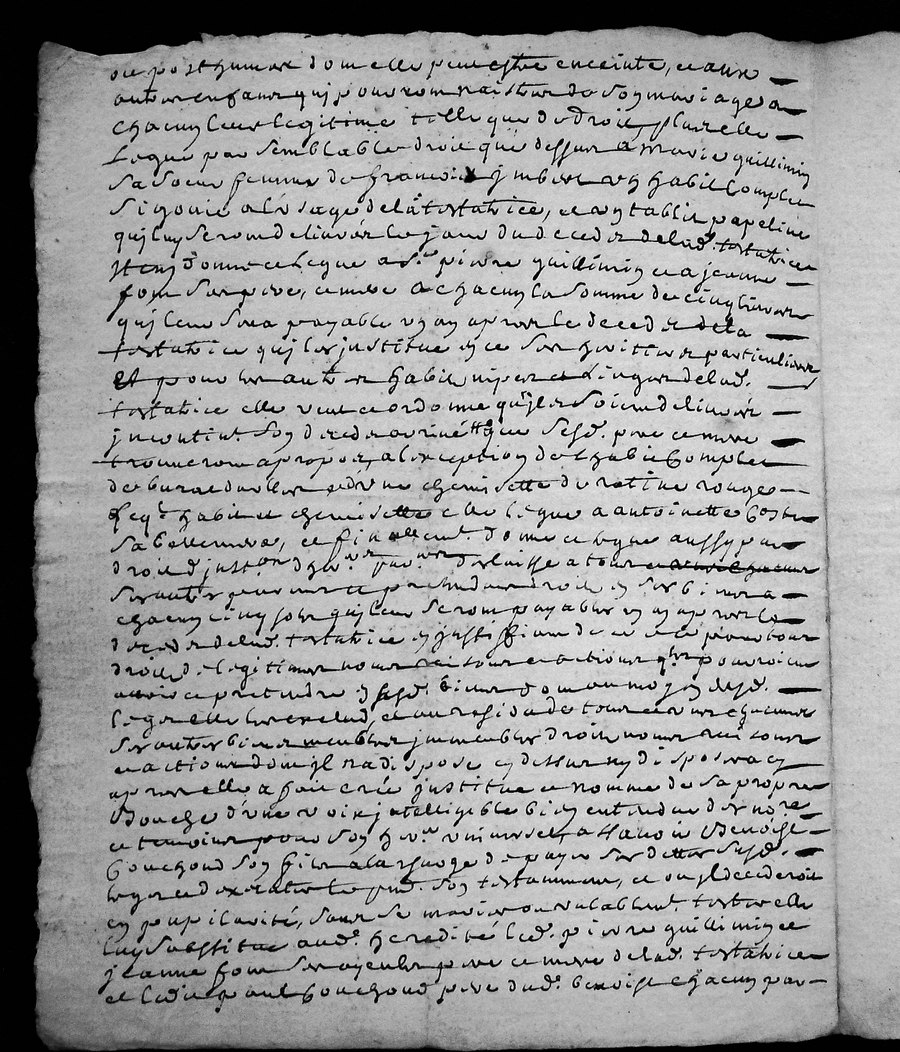 ou posthumes dont elle peut estre enceinte, et aux
autres enfans qui pourront naistre de son mariage a
chacun leur legitime telle que de droit, plus elle
Legue par semblable droit que dessus a Marie guillimin
sa soeur femme de francois jmbert un habit Complet
a lusage de la testatrice, et un tablié papeline
qui luy seront deliurés le jour du deces de lad. testatrice
Jtem donne et legue a Sr. pierre guillimin et a jeanne
font ses pere, et mere a chacun la somme de cinq liures
qui leur sera payable un an apres le deces de la
testatrice qui les justitue en ce ses heritiers particuliers
Et pour les autres habits nipes et linges de lad.
testatrice elle veut et ordonne quils soient deliurés
jncontint. son deces arriué que sesd. pere et mere
trouueront a propos, a lexception de lhabit Complet
de burat et dune chemisette de ratine rouge
Leql. habit et chemisette elle legue a antoinette
sa bellemere, et finallemt. donne et legue aussy par
droit djnston. dherer. parer. et laisse a tous
ses autres pretendans droit en ses biens a
chacun cinq sols qui leur seront payables un an apres le
deces de lad. testatrice en justiffiant de ce et la pour tous
droits de legitimes noms raisons et actions quils pourroient
auoir et pretendre en sesd. biens dont au moyen desd.
legats elle les exclud, et au residu de tous et uns chacuns
ses autres biens meubles jmmeubles droits noms raisons
et actions dont jl na dispose cy dessus ny disposera cy
apres elle a fait crée justitue et nomme de sa propre
Bouche dune voix jntelligible bien entendue des nore.
et temoins pour son herer. uniuersel, a sauoir Benoist
Gouchoud son fils a la charge de payer ses dettes susd.
legats et dexecuter le pnt. son testamment, et ou jl decederoit
en pupilarité, sans se marier ou valablemt. tester elle
luy substitue aud. heredité led. pierre guillimin et
jeanne font ses ayeuls pere et mere de lad. testatrice
et led. paul Gouchoud pere dud. benoist chacun par